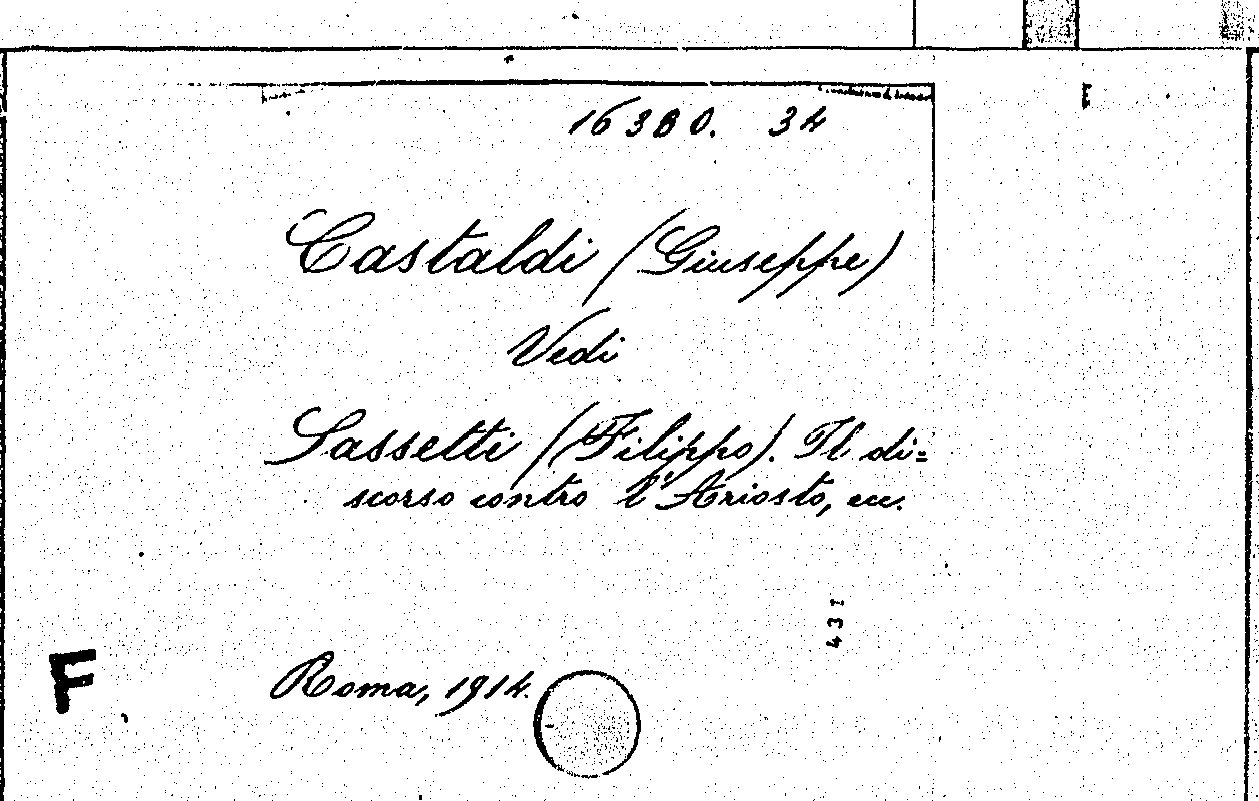 16380. 34
Castaldi (Giuseppe)
Vedi
Sassetti (Filippo). Il di=
scorso contro l'Ariosto, ecc.
431
F
Roma, 1914.